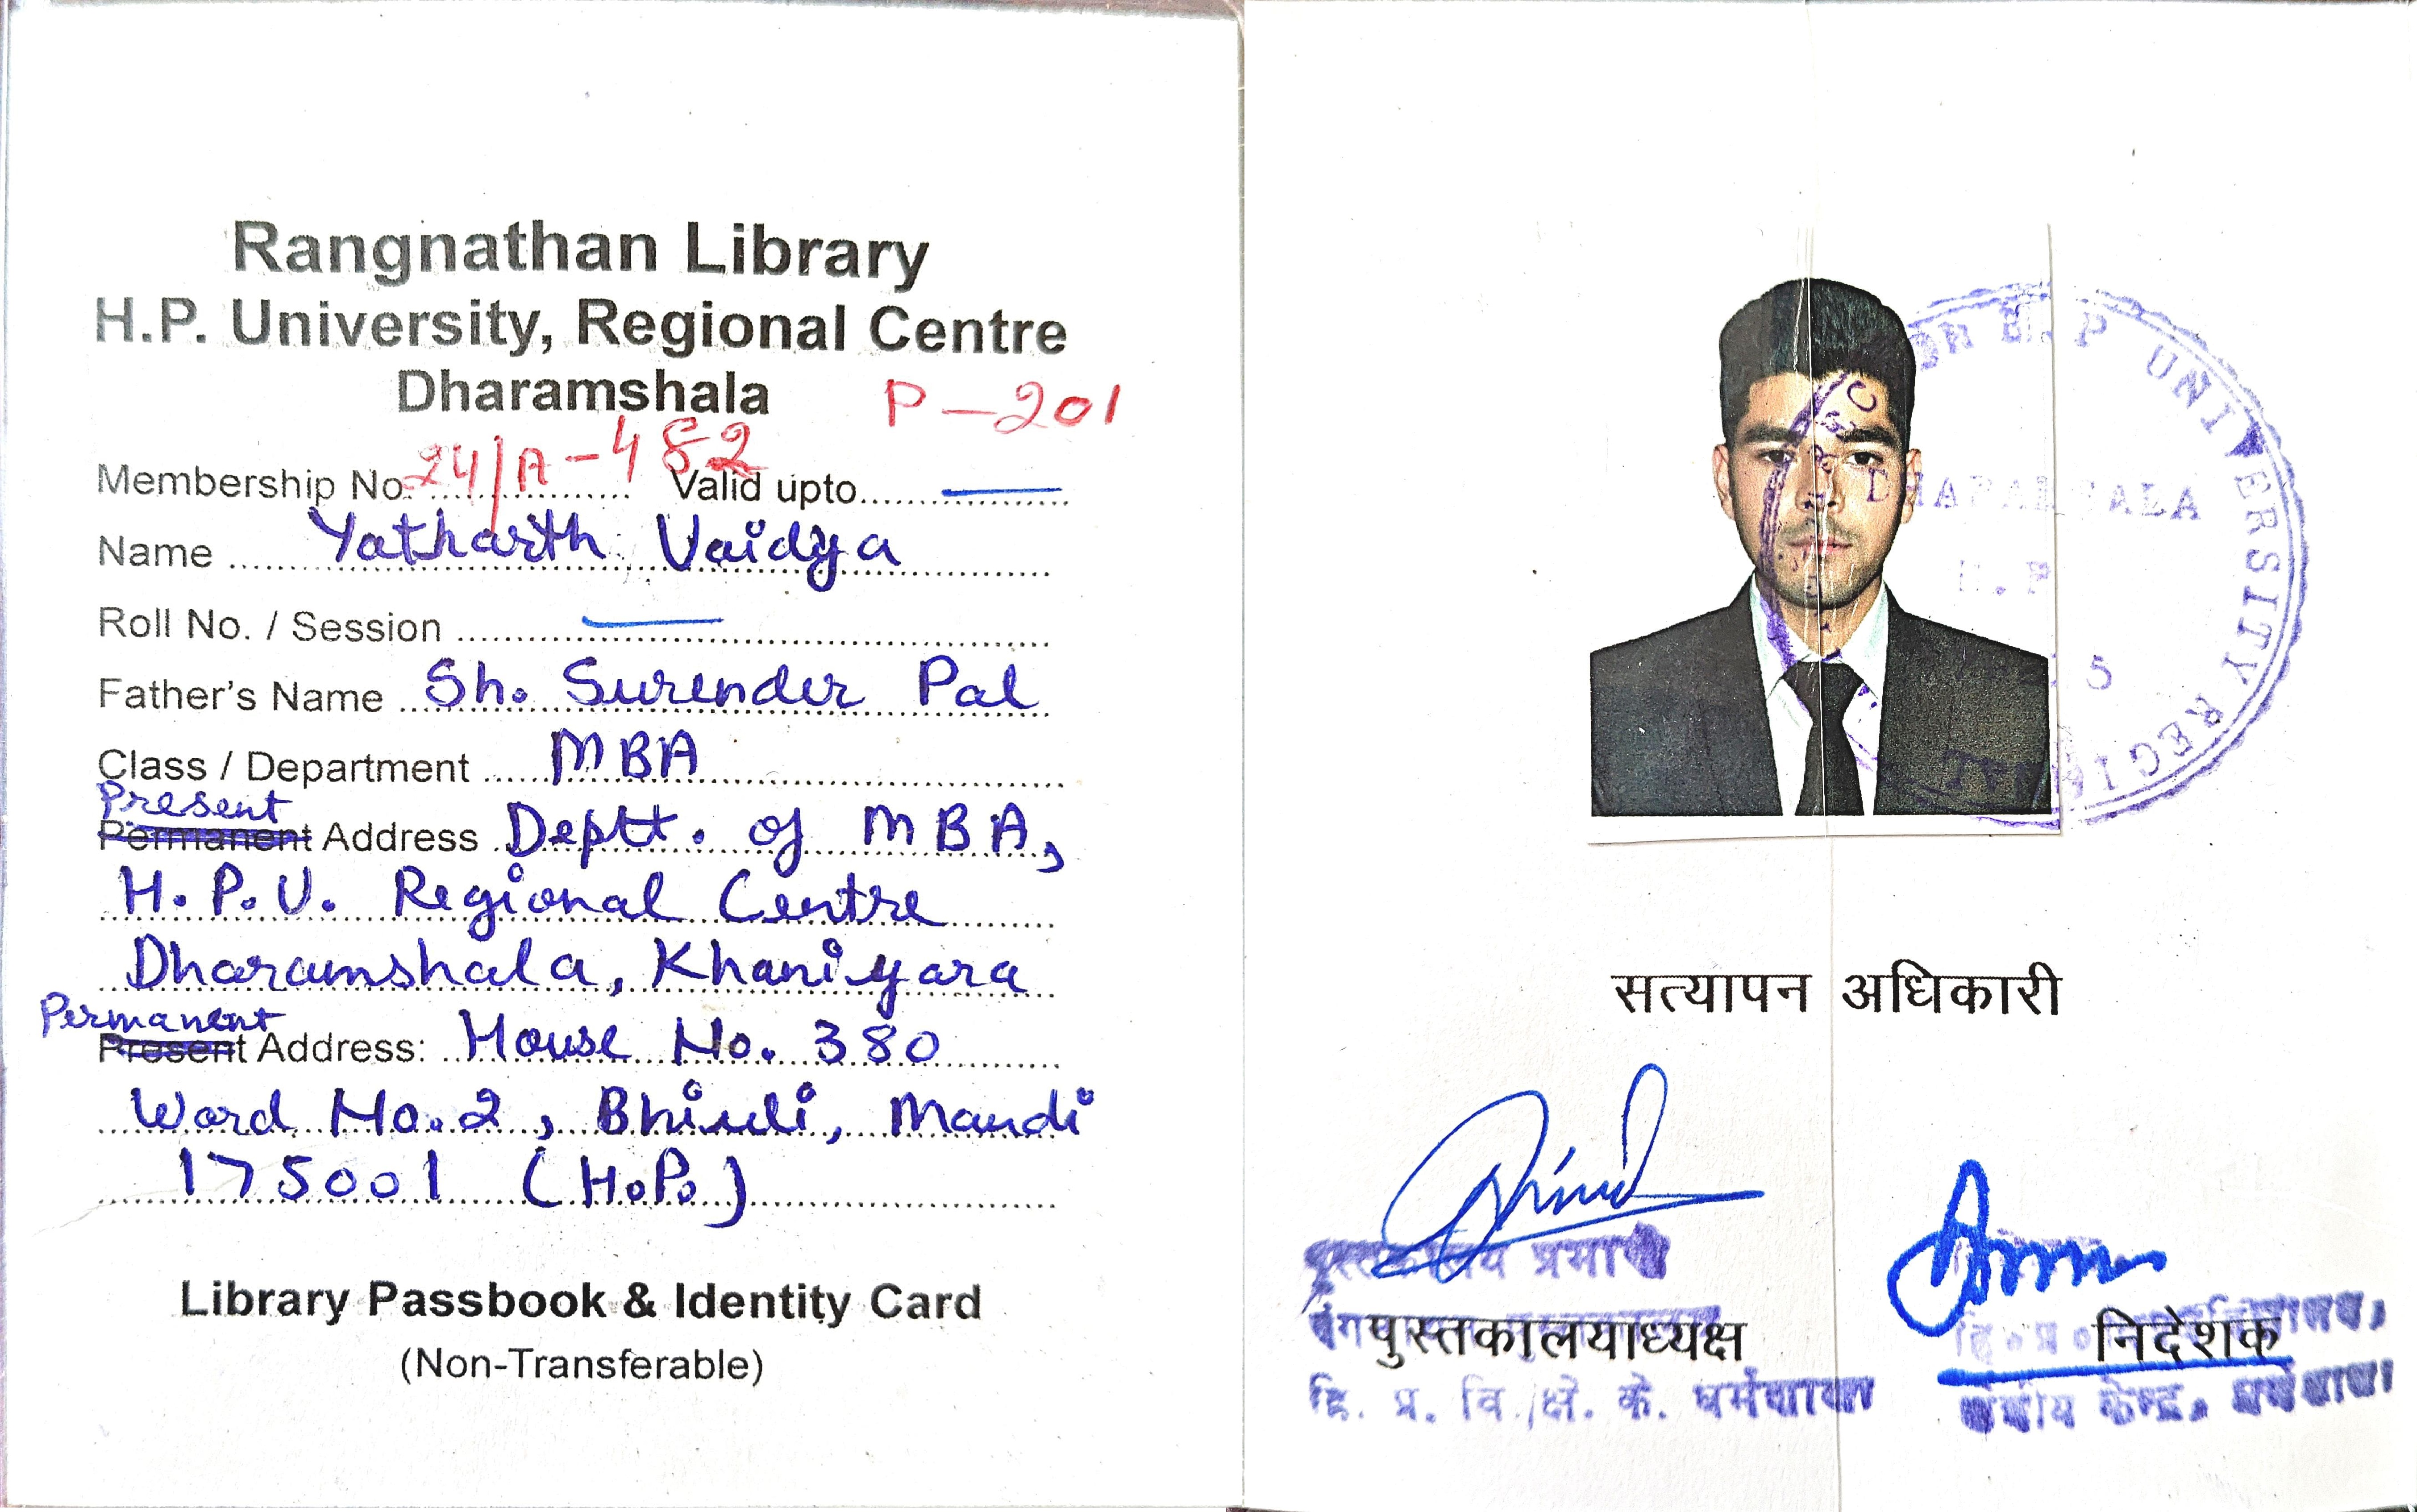 Rangnathan Library
H.P. University, Regional Centre
Dharamshala
P-201
Membership No. 24/A-482 Valid upto........
Name Yatharth Vaidya
Roll No. / Session
Father's Name Sh. Surender Pal
Class / Department MBA
Present
Permanent Address Deptt. of MBA,
H.P.U. Regional Centre
Dharamshala, Khaniyara
Permanent
Present Address: House No. 380
Ward No. 2, Bhiuli, Mandi
175001 (H.P.)
Library Passbook & Identity Card
(Non-Transferable)
H.P UNIVERSITY REGI
DHARAMSHALA
H.P
5
सत्यापन अधिकारी
पुस्तकालय प्रभारी
पुस्तकालयाध्यक्ष
हि. प्र. वि./क्षे. के. धर्मशाला
निदेशक
हि० प्र०
क्षेत्रीय केन्द्र, धर्मशाला